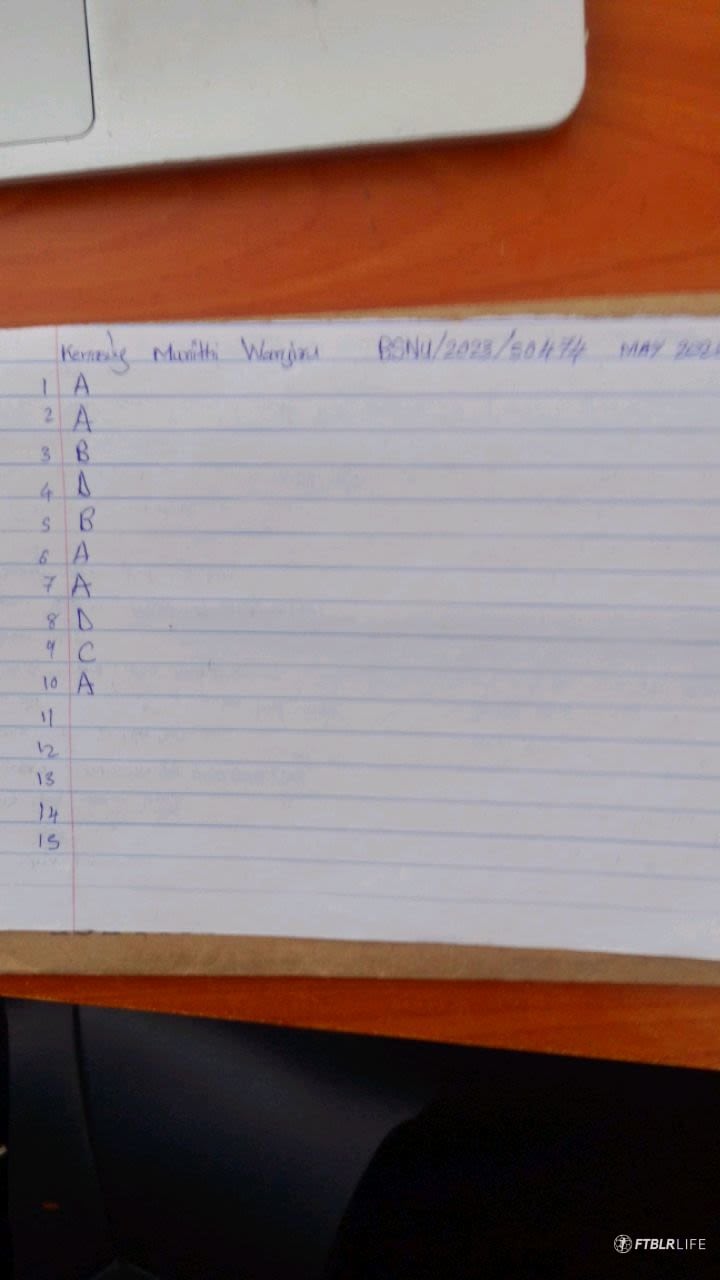 Munithi Wanjiru BSNU/2023/30474 MAY
1 A
2 A
3 B
4 D
5 B
6 A
7 A
8 D
9 C
10 A
11
12
13
14
15
FTBLRLIFE